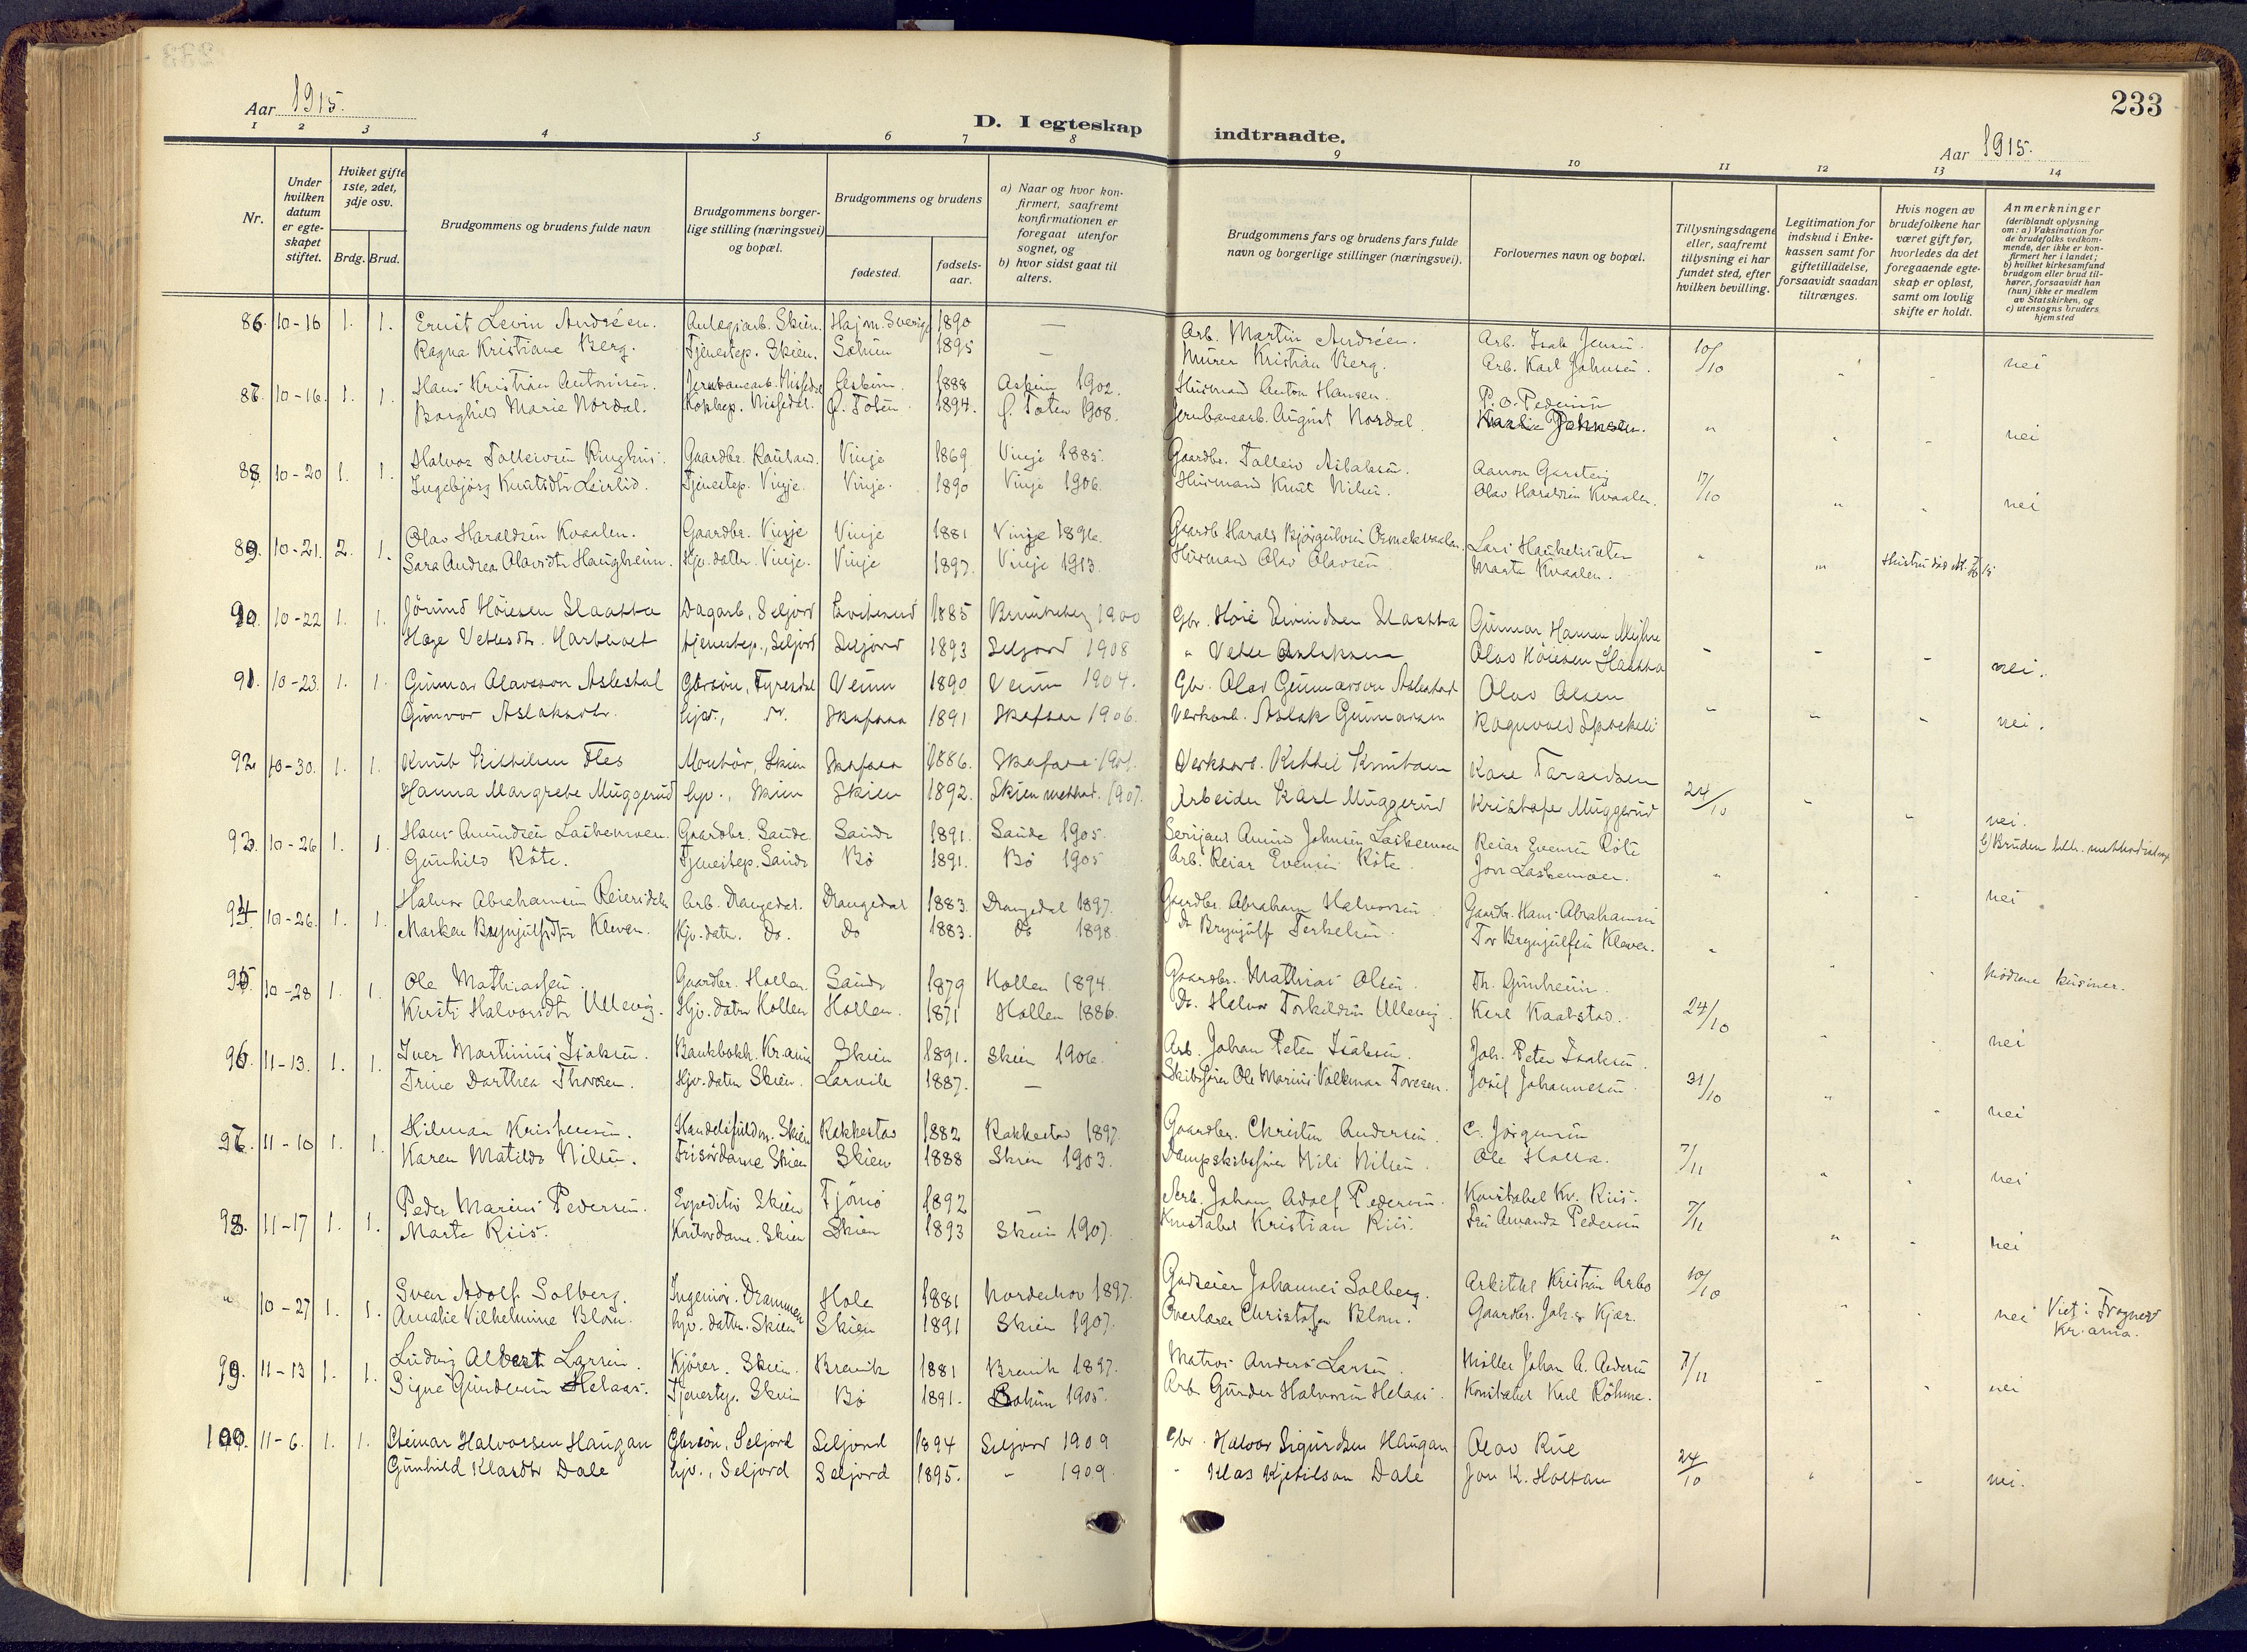 233
Aar 1915.
D. I egteskap indtraadte.
Aar 1915.
1 2 3 4 5 6 7 8 9 10 11 12 13 14
Nr.
Under hvilken datum er egteskapet stiftet.
Hviket gifte 1ste, 2det, 3dje osv.
Brdg. Brud.
Brudgommens og brudens fulde navn
Brudgommens borgerlige stilling (næringsvei) og bopæl.
Brudgommens og brudens
fødested.
fødselsaar.
a) Naar og hvor konfirmert, saafremt konfirmationen er foregaat utenfor sognet, og
b) hvor sidst gaat til alters.
Brudgommens fars og brudens fars fulde navn og borgerlige stillinger (næringsvei).
Forlovernes navn og bopæl.
Tillysningsdagene eller, saafremt tillysning ei har fundet sted, efter hvilken bevilling.
Legitimation for indskud i Enkekassen samt for giftetilladelse, forsaavidt saadan tiltrænges.
Hvis nogen av brudefolkene har været gift før, hvorledes da det foregaaende egteskap er opløst, samt om lovlig skifte er holdt.
Anmerkninger
(deriblandt oplysning om: a) Vaksination for de brudefolks vedkommende, der ikke er konfirmert her i landet; b) hvilket kirkesamfund brudgom eller brud tilhører, forsaavidt han (hun) ikke er medlem av Statskirken, og c) utensogns bruders hjemsted
86. 10-16 1. 1. Ernst Levin Andréen. Anlægsarb. Skien. 1890 — Arb. Martin Andréen. Arb. Isak Jensen. 10/10 " " nei
Ragna Kristiane Berg. Tjenestep. Skien. 1895 — Murer Kristian Berg. Arb. Karl Johnsen.
87. 10-16. 1. 1. Hans Kristian Antonsen. Jernbanearb. Nissedal Askim. 1888 Askim 1902. Husmand Anton Hansen. P. O. Pedersen " " " nei
Borghild Marie Nordal. Kokkep. Nissedal. Ø. Toten 1894. Ø. Toten 1908. Jernbanearb. August Nordal. Karl Johnsen.
88. 10-20 1. 1. Halvor Tolleivsen Ringhus. Gaardbr. Rauland. Vinje 1869 Vinje 1885. Gaardbr. Tolleiv Aslaksen. Aanon Garsteig 17/10 " " nei
Ingebjørg Knutsdtr Leirlid. Tjenestep. Vinje. Vinje. 1890 Vinje 1906. Husmand Knut Nilsen. Olav Haraldsen Kvaalen.
89. 10-21. 2. 1. Olav Haraldsen Kvaalen. Gaardbr. Vinje Vinje 1881 Vinje 1896. Gaardb. Harald Bjørgulvsen Lars Haukelisæter " "
Sara Andrea Olavsdtr Haugheim. Hjv. datter. Vinje. Vinje 1897. Vinje 1913. Husmand Olav Olavsen. Marta Kvaalen.
90. 10-22 1. 1. Jørund Høiesen Slaatta Dagarb., Seljord 1885 1900 Gbr. Høie Eivindsen Slaatta Gunnar Hansen " " " nei.
Hæge Vetlesdtr. tjenestep., Seljord Seljord 1893 Seljord 1908 " Vetle Aslaksen Olav Høiesen Slaatta
91. 10-23. 1. 1. Gunnar Olavsson Aslestad Gbrsøn, Fyresdal Veum 1890 Veum 1904. Gbr. Olav Gunnarson Aslestad Olav Olsen " " " nei.
Gunvor Aslaksdtr. hjv., do. Skafsaa 1891 Skafsaa 1906. Verksarb. Aslak Gunnarsen Ragnvald
92 10-30. 1. 1. Knut Kittilsen Fles Montør, Skien Skafsaa 1886. Skafsaa 1901. Verksarb. Kittil Knutsen Kare Taraldsen 24/10 " " nei.
Hanna Margrete Muggerud hjv., Skien Skien 1892. Skien method. 1907. Arbeider Karl Muggerud Kristofer Muggerud b) Bruden tilh. methodistmgh.
93. 10-26 1. 1. Hans Amundsen Laskemoen. Gaardbr. Sande. Sande 1891. Sande 1905. Serjant Amund Johnsen Laskemoen Reiar Evensen Røte " " " nei
Gunhild Røte. Tjenestep. Sande Bø 1891. Bø 1905 Arb. Reiar Evensen Røte. Jon Laskemoen.
94 10-26. 1. 1. Halvor Abrahamsen Reiersdalen Arb. Drangedal. Drangedal 1883. Drangedal 1897. Gaardbr. Abraham Halvorsen Gaardbr. Hans Abrahamsen " " " Mødrene kusiner.
Marken Brynjulfsdtr Kleven. Hjv. datter. Do. Do 1883. Do 1898. Do Brynjulf Terkelsen. Tor Brynjulfsen Kleven.
95 10-28 1. 1. Ole Mathiassen. Gaardbr. Hollen. Sande 1879 Hollen 1894. Gaardbr. Mathias Olsen. Th. Gunheim. 24/10 " " nei
Kirsti Halvorsdtr Ullevig. Hjv. datter Hollen Hollen. 1871 Hollen 1886. Do. Halvor Torkildsen Ullevig. Karl Kaalstad.
96. 11-13. 1. 1. Iver Martinius Isaksen. Bankbokh. Kr.ania Skien 1891. Skien 1906. Arb. Johan Peter Isaksen. Joh. Peter Isaksen. 31/10 " " nei
Trine Dorthea Thoresen. Hjv. datter Skien. Larvik 1887. — Skibsfører Ole Marius Valkmar Toresen. Josef Johannesen.
97. 11-10 1. 1. Hilmar Kristensen. Handelsfuldm. Skien Rakkestad 1882 Rakkestad 1897. Gaardbr. Christen Andersen. C. Jørgensen 7/11 " " nei
Karen Matilde Nilsen. Frisørdame Skien Skien 1888 Skien 1903. Dampskibsfører Nils Nilsen. Ole Holla.
98. 11-17 1. 1. Peder Marius Pedersen. Expeditør Skien Tjømø 1892 Arb. Johan Adolf Pedersen. Konstabel Kr. Riis. 7/11 " " nei
Marta Riis. Kontordame. Skien Skien 1893 Skien 1907. Konstabel Kristian Riis. Fru Amanda Pedersen
" 10-27 1. 1. Sven Adolf Solberg. Ingeniør. Drammen Hole 1881 Norderhov 1897. Godseier Johannes Solberg. Arkitekt Kristian Arbo 10/10 " " nei Viet i Frogner
Amalie Vilhelmine Blom. hjv. datter. Skien Skien 1891 Skien 1907. Overlærer Christofer Blom. Gaardbr. Joh. Kjær. Kr.ania.
99. 11-13 1. 1. Ludvig Albert Larsen. Kjører. Skien. Brevik 1881 Brevik 1897. Matros Anders Larsen. Møller Johan A. Pedersen 7/11 " " nei
Signe Gundersen Helaas. Tjenestep. Skien Bø 1891. 1905. Arb. Gunder Halvorsen Helaas. Konstabel Karl Røhme.
100. 11-6. 1. 1. Steinar Halvorsen Haugan Gbrsøn, Seljord Seljord 1894 Seljord 1909 Gbr. Halvor Sigurdsen Haugan Olav Rue 24/10 " " nei.
Gunhild Klasdtr Dale hjv., Seljord Seljord 1895. " 1909. " Klas Kjetilson Dale Jon K. Holtan